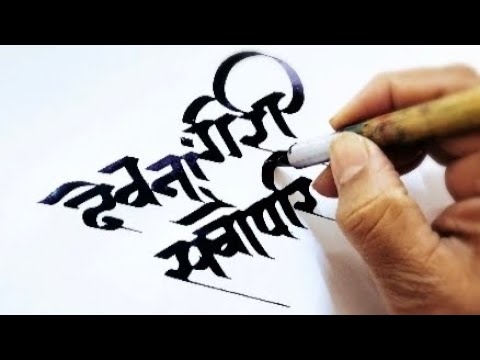 देवनागरी
सर्वोपरि